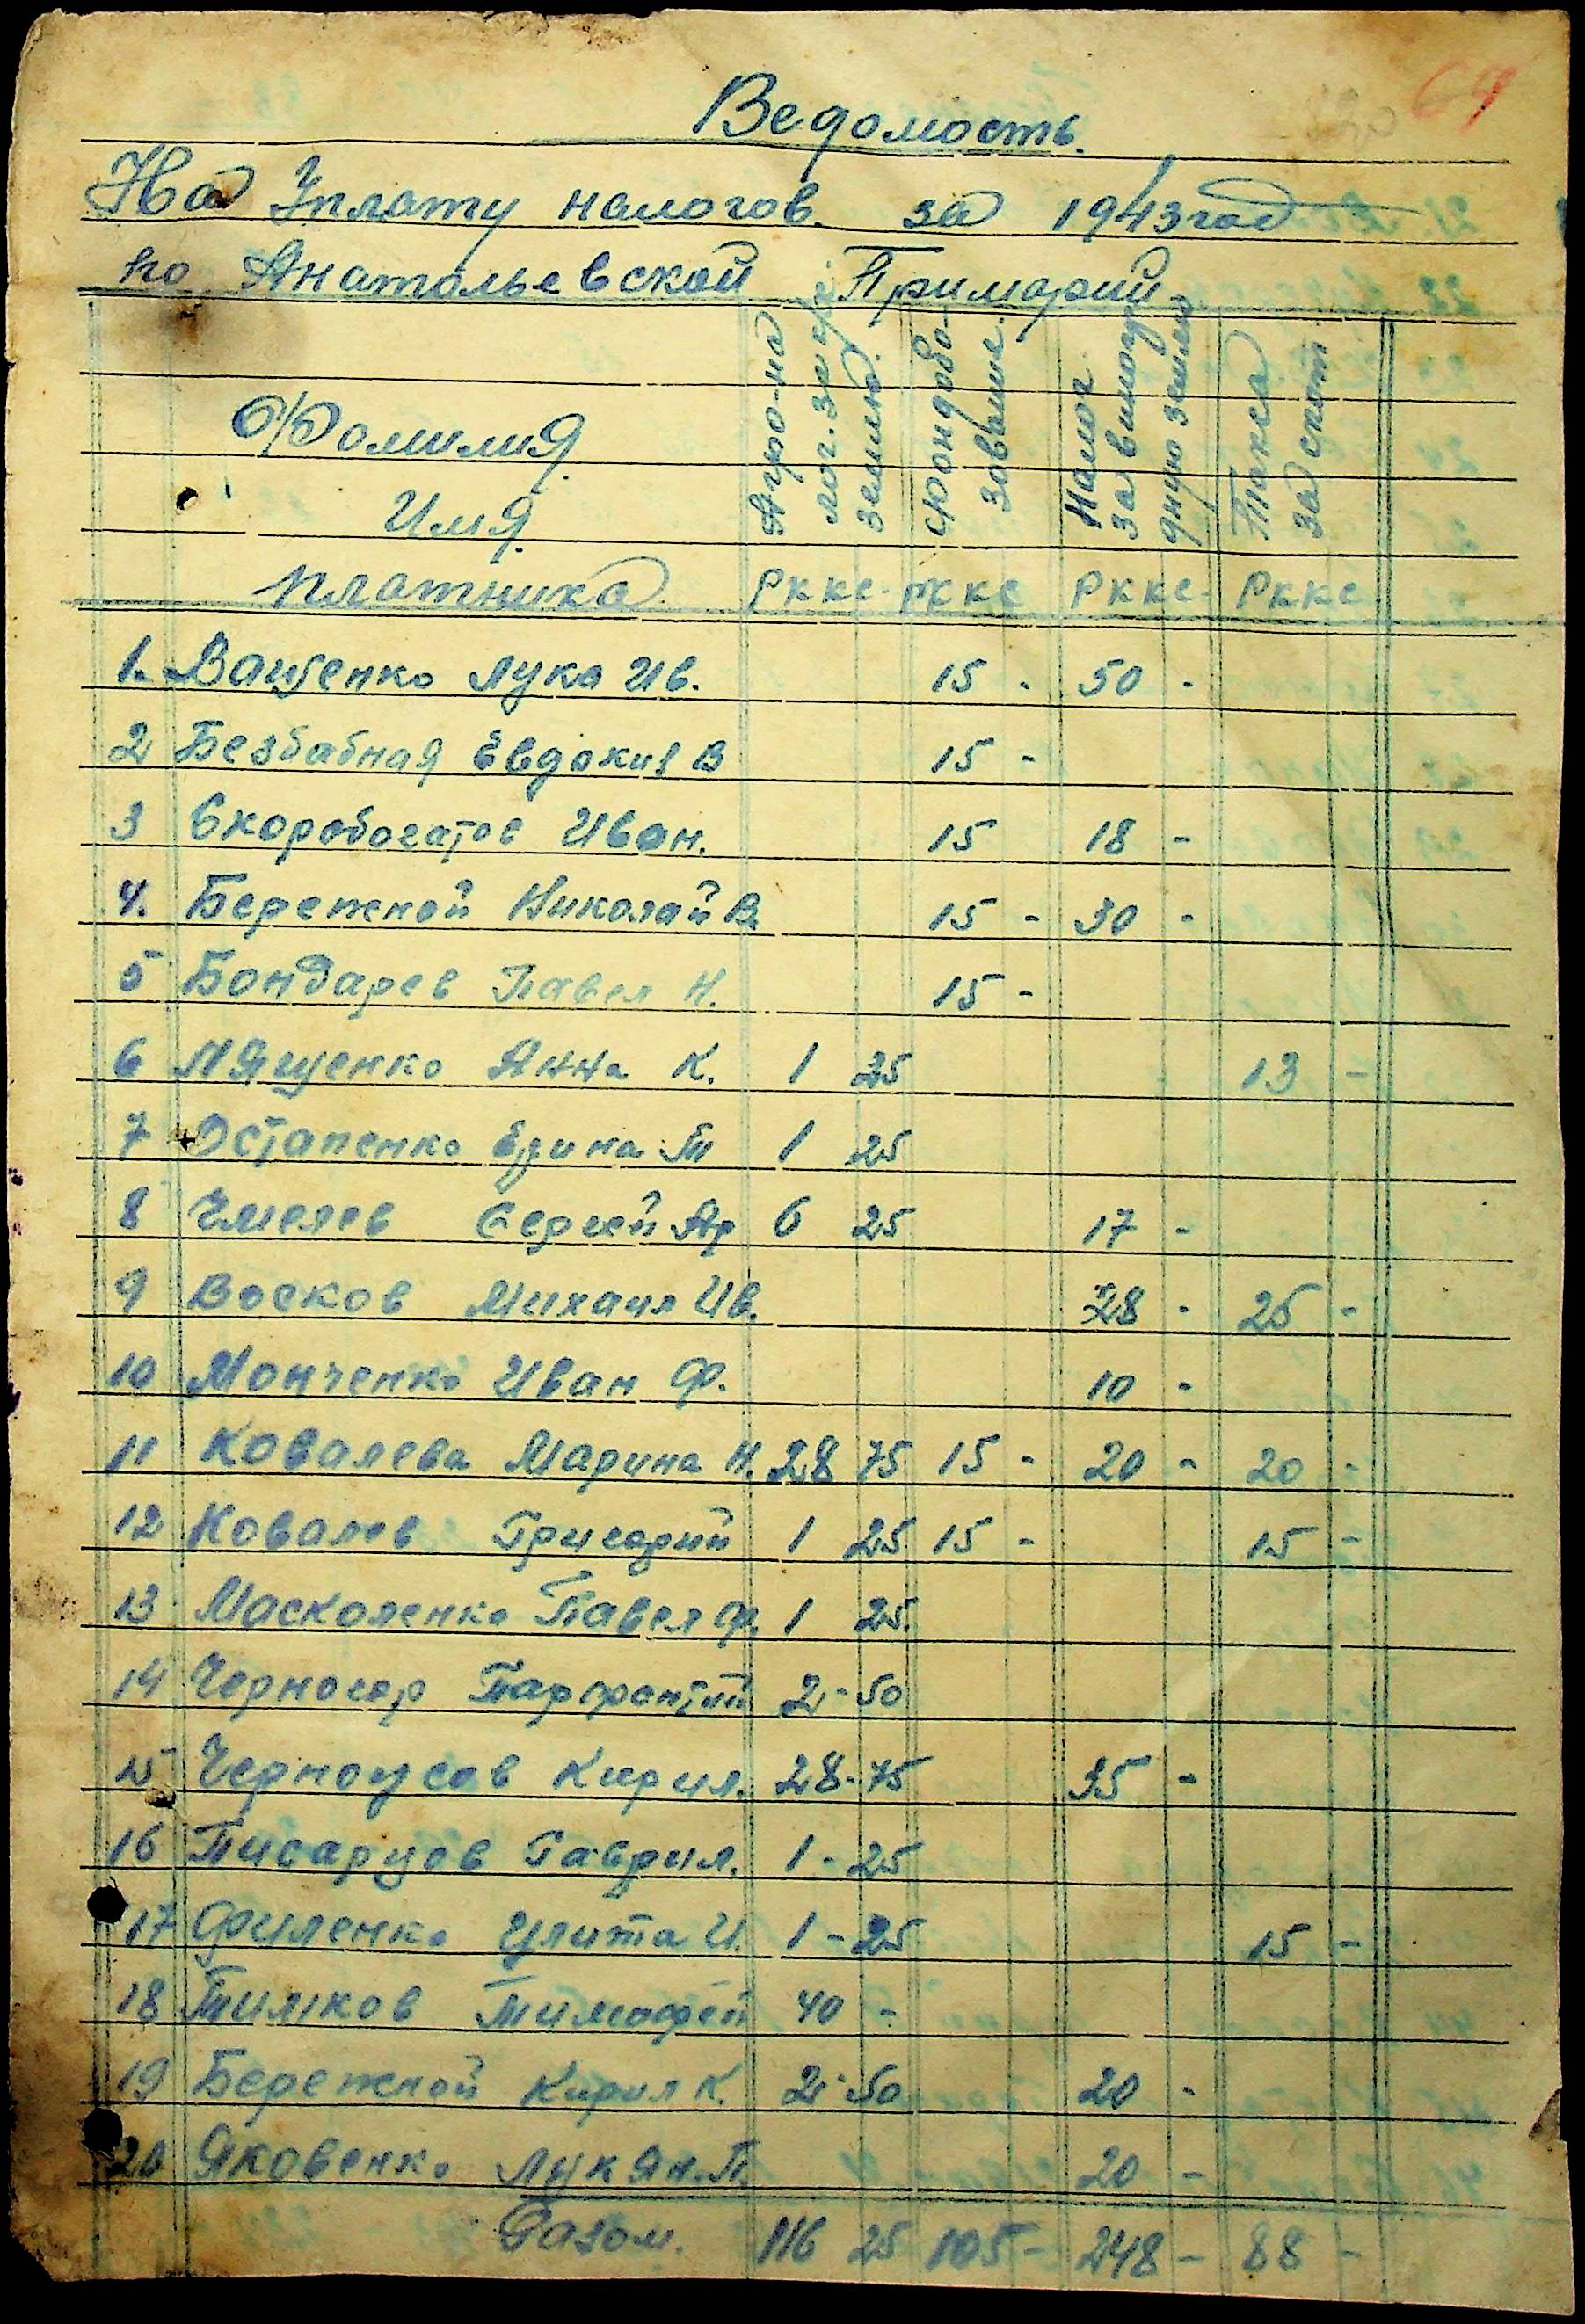 64
Ведомость.
На Уплату налогов за 1943 год
по Анатольевской Примарии
Фамилия Имя платника
Агро-налог. за землю.
Фондово-
Налог за виногродную землю
Такса за скот
Рккс Рккс Рккс Рккс
1. Ващенко Лука Ив. 15 - 50 -
2 Безбабная Евдокия В 15 -
3 Скоробогатов Иван. 15 18 -
4. Бережной Николай В. 15 - 30 -
5 Бондарев Павел Н. 15 -
6 Лященко Анна К. 1 25 13 -
7 Остапенко Ерина Т 1 25
8 Чмелев Сергей Ар 6 25 17 -
9 Восков Михаил Ив. 28 - 25 -
10 Монченко Иван Ф. 10 -
11 Ковалева Марина Н. 28 75 15 - 20 - 20 -
12 Ковалев Григорий 1 25 15 - 15 -
13 Масколенко Павел Ф. 1 25.
14 Черногор Парфентий 2 - 50
15 Черноусов Кирил. 28 - 75 35 -
16 Писарцов Гаврил. 1 - 25
17 Филенко Улита И. 1 - 25 15 -
18 Тимков Тимофей 40 -
19 Бережной Кирил К. 2 - 50 20 -
20 Яковенко Лукян. П. 20 -
Разом. 116 25 105 - 248 - 88 -